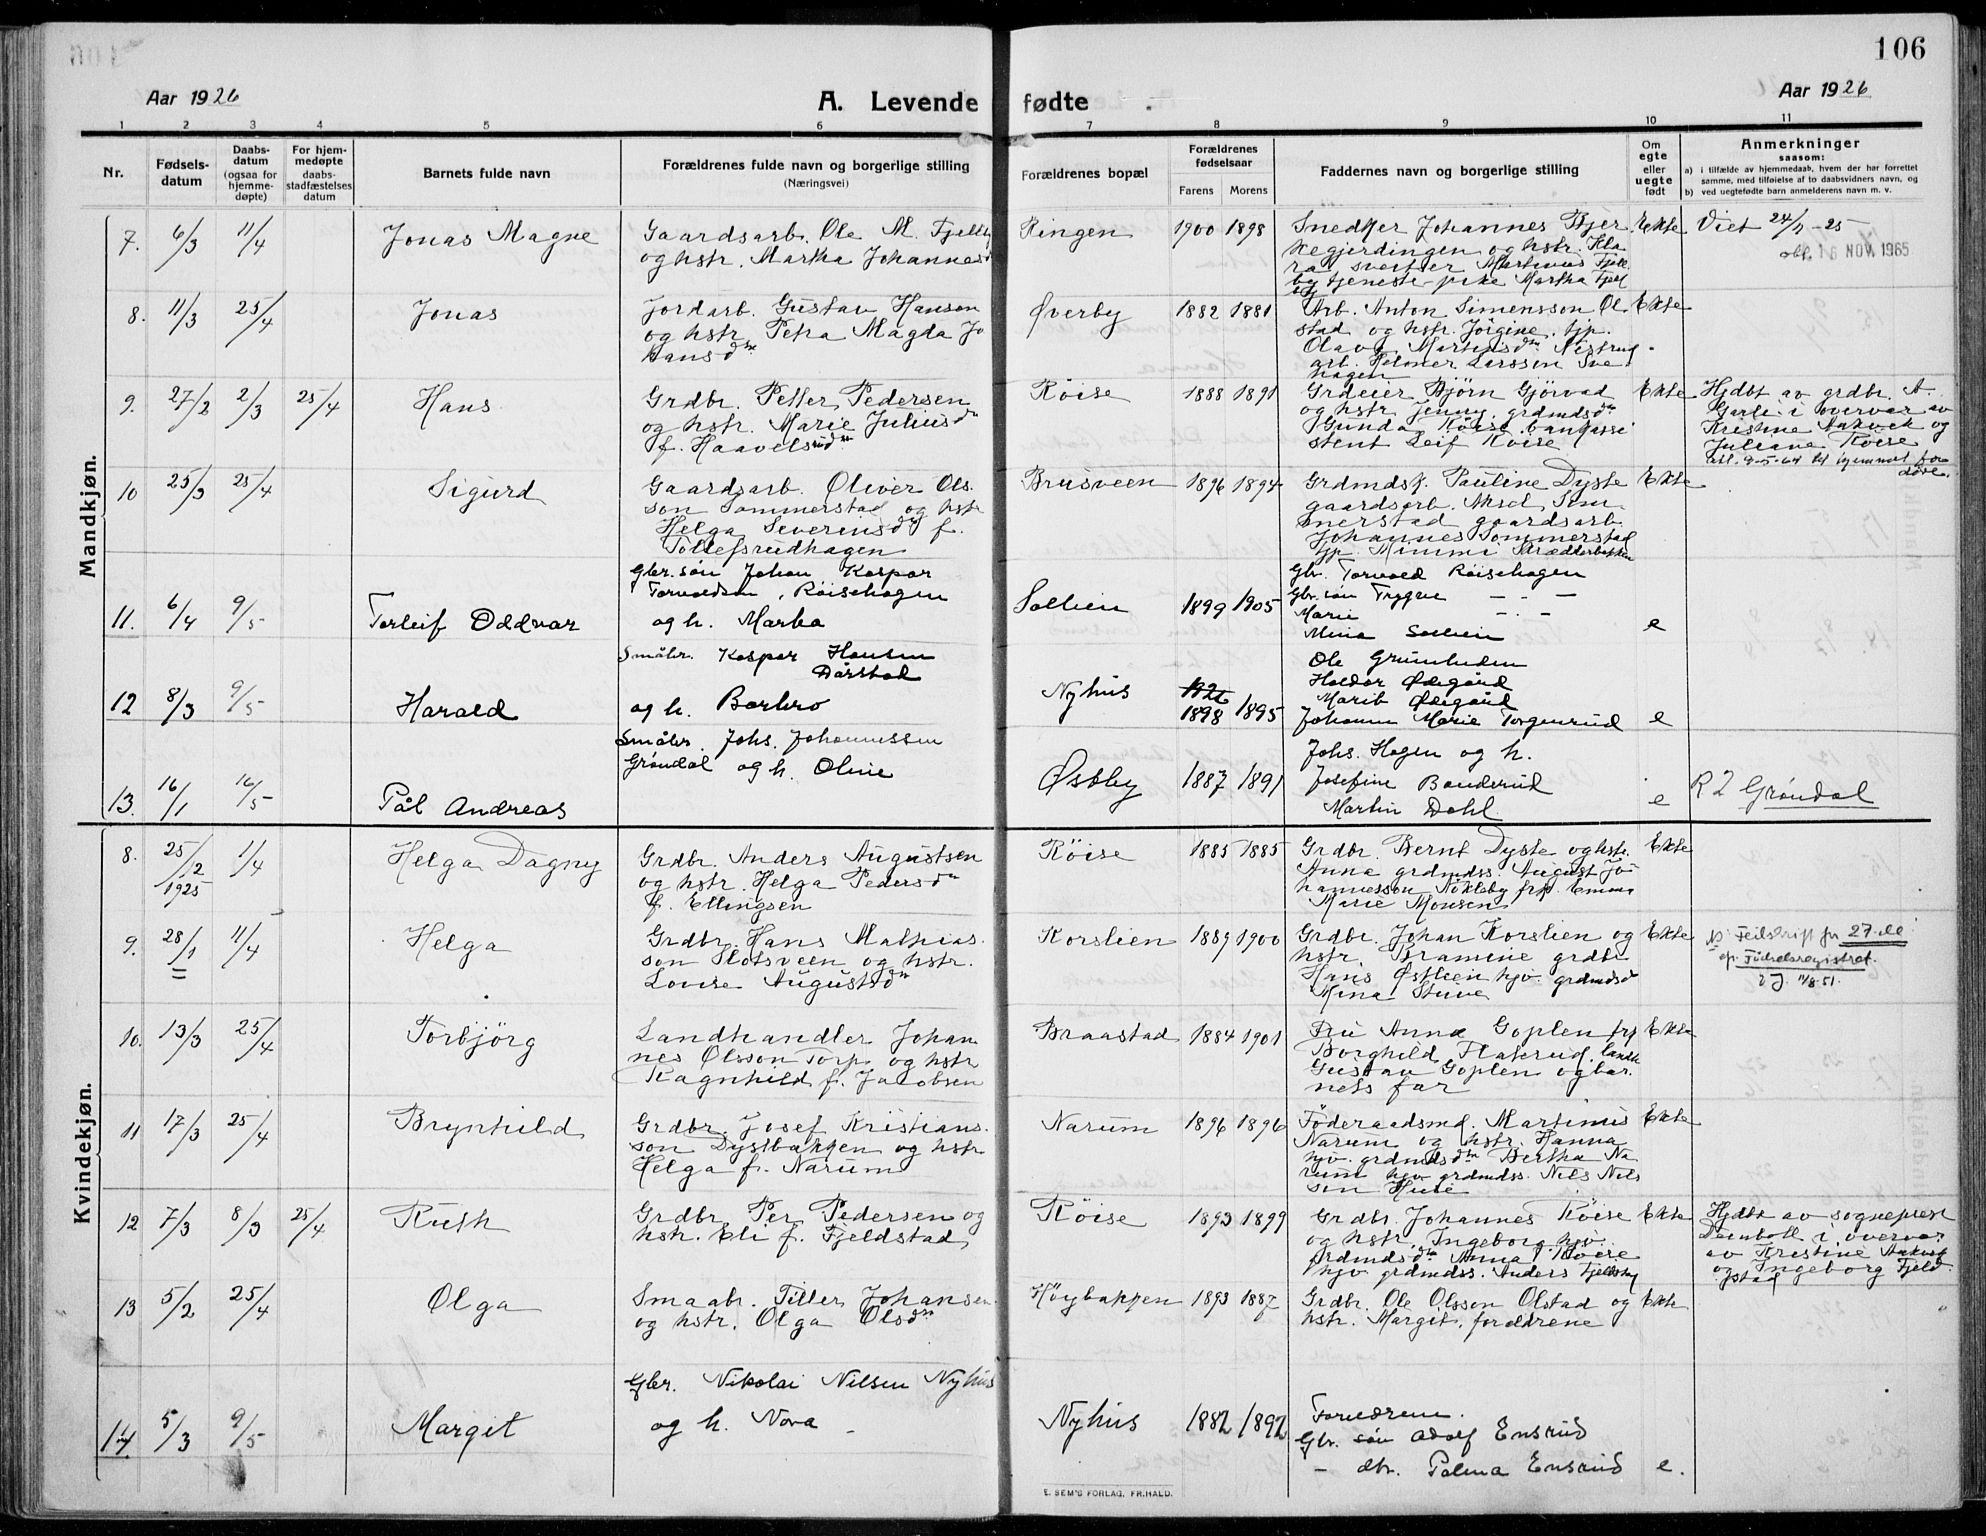 106
Aar 1926
A. Levende fødte
Aar 1926
1 2 3 4 5 6 7 8 9 10 11
Nr.
Fødsels-
datum
Daabs-
datum
(ogsaa for
hjemme-
døpte)
For hjem-
medøpte
daabs-
stadfæstelses
datum
Barnets fulde navn
Forældrenes fulde navn og borgerlige stilling
(Næringsvei)
Forældrenes bopæl
Forældrenes
fødselsaar
Farens Morens
Faddernes navn og borgerlige stilling
Om
egte
eller
uegte
født
Anmerkninger
saasom:
a) i tilfælde av hjemmedaab, hvem der har forrettet
samme, med tilføielse af to daabsvidners navn, og
b) ved uegtefødte barn anmelderens navn m. v.
Mandkjøn.
7. 6/3 11/4 Jonas Magne
Gaardsarb. Ole M. Fjellby
og hstr. Martha Johannesd
Ringen 1900 1898
Snedker Johannes Bjer
kegjerdingen og hstr. Kla
ra svertser Martinus Fjell
by tjeneste-pike Martha Fjel
by
Ekte
Viet 24/1-25
16 NOV. 1965
8. 11/3 25/4 Jonas
Jordarb. Gustav Hansen
og hstr. Petra Magda Jo
hansdtr
Øverby 1882 1881
Arb. Anton Simensson Øl
stad og hstr. Jörgine, tjp.
Olava Martinsdtr Nistrug
arb. Helmer Larssen Sve
hagen
Ekte
9. 27/2 2/3 25/4 Hans
Grdbr. Petter Pedersen
og hstr. Marie Juliusdtr
f. Haavelsrud
Röise 1888 1891
Grdeier Bjørn Gjörvad
og hstr. Jenny, grdmdsdtr
Gunda Röise bankassi
stent Leif Röise
Ekte
Hjdbt av grdbr. A.
Garli i overvær av
Kristine Aakvik og
Juliane Röise
10 25/3 25/4 Sigurd
Gaardsarb. Oliver Ols
son Sommerstad og hstr
Helga Severinsdtr f.
Tollefsrudhagen
Brusveen 1896 1894
Grdmdsk. Pauline Dyste
gaardsarb. Aksel Som
merstad gaardsarb.
Johannes Sommerstad
tjp. Mimmi Skrædderbakken
Ekte
11. 6/4 9/5 Torleif Oddvar
Gbr. søn Johan Kaspar
Torvaldsen, Röisehagen
og h. Marka
Sollien 1899 1905
Gbr. Torvald Röisehagen
Gbr. søn Trygve — - —
Marie — - —
Mina Sollien
e
12 8/3 9/5 Harald
Småbr. Kaspar Hansen
Dårstad
og h. Barbro
Nyhus 1926 1898 1895
Ole Grimluden
Haldor Ødegård
Marit Ødegård
Johanna Marie Torgunrud
e
13. 16/1 16/5 Pål Andreas
Småbr. Johs. Johannessen
Grøndal og h. Oline
Østby 1887 1891
Johs. Hagen og h.
Josefine Bauderud
Martin Dahl
e
R 2 Grøndal
Kvindekjøn.
8. 25/12 1925 1/4 Helga Dagny
Grdbr. Anders Augustsen
og hstr. Helga Pedersdtr
f. Ellingsen
Röise 1885 1885
Grdbr. Bernt Dyste og hstr.
Anna grdmdss. August Jo
hannesson Nöklsby frk. Emma
Marie Monsen
Ekte
9. 28/1 11/4 Helga
Grdbr. Hans Mathias
son Slotsveen og hstr.
Lovise Augustsdtr
Korslien 1889 1900
Grdbr. Johan Korslien og
hstr. Bramine grdbr
Hans Østlien hjv. grdmdsd
Mina Stuve
Ekte
Feilskrift for 27-de
ep. Fødselsregistret.
11/8.51.
10. 13/3 25/4 Torbjörg
Landhandler Johan
nes Olsson Torp og hstr
Ragnhild f. Jacobsen
Braastad 1884 1901
Fru Anna Goplen frk
Borghild Flaterud, landh
Gustav Goplen og bar
nets far
Ekte
11 17/3 25/4 Brynhild
Grdbr. Josef Kristians
son Dystbakken og hstr
Helga f. Narum
Narum 1896 1896
Föderaadsmd. Martinus
Narum og hstr. Hanna
hjv. grdmdsdtr Bertha Na
rum hjv grdmdss. Nils Nils
son Huse
Ekte
12 7/3 8/3 25/4 Ruth
Grdbr. Per Pedersen og
hstr. Eli f. Fjeldstad,
Röise 1893 1899
Grdbr. Johannes Röise
og hstr. Ingeborg hjv.
grdmdsdtr Anna Röise
hjv. grdmdss. Anders Fjellsby
Ekte
Hjdbt av sogneprest
Deinboll i overvær
av Kristine Aakvik
og Ingeborg Fjeld
stad
13 5/2 25/4 Olga
Smaabr. Tiller Johansen
og hstr. Olga Olsdtr
Höybakken 1893 1887
Grdbr. Ole Olsson Olstad og
hstr. Margit, forældrene
Ekte
14 5/3 9/5 Margit
Gbr. Nikolai Nilsen Nyhus
og h. Nora
Nyhus 1882 1892
Forældrene.
Gbr. søn Adolf Ensrud
— dtr. Palma Ensrud
e.
E. SEM'S FORLAG, FR.HALD.